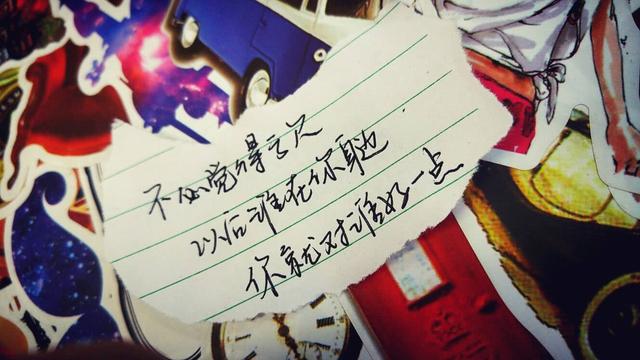 不必觉得亏欠
以后谁在你身边
你就对谁好一点